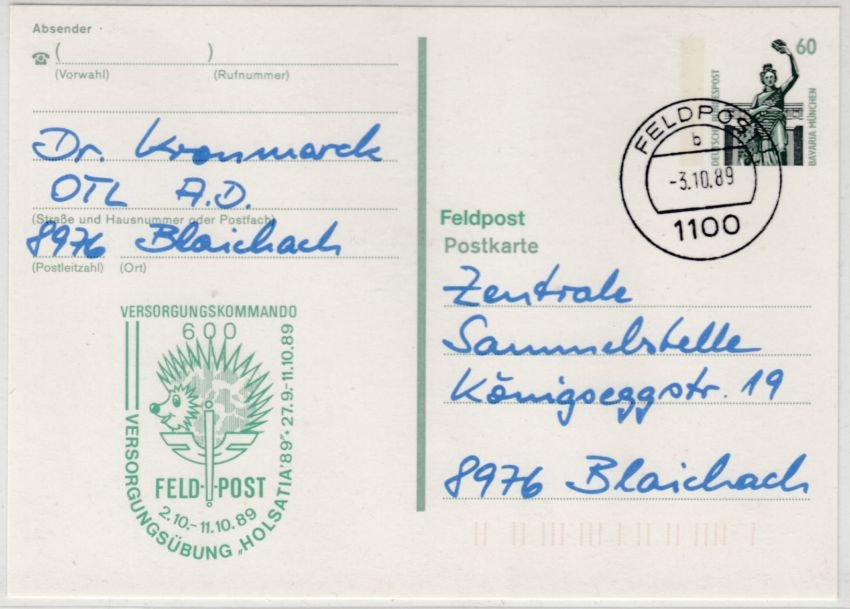 Absender ·
☎ ( )
(Vorwahl) (Rufnummer)
Dr. Kronmarck
OTL A.D.
(Straße und Hausnummer oder Postfach)
8976 Blaichach
(Postleitzahl) (Ort)
VERSORGUNGSKOMMANDO
600
VERSORGUNGSÜBUNG „HOLSATIA'89“·27.9.-11.10.89
FELD-POST
2.10.-11.10.89
60
DEUTSCHE BUNDESPOST
BAVARIA MÜNCHEN
FELDPOST
b
-3.10.89
1100
Feldpost
Postkarte
Zentrale
Sammelstelle
Königseggstr. 19
8976 Blaichach